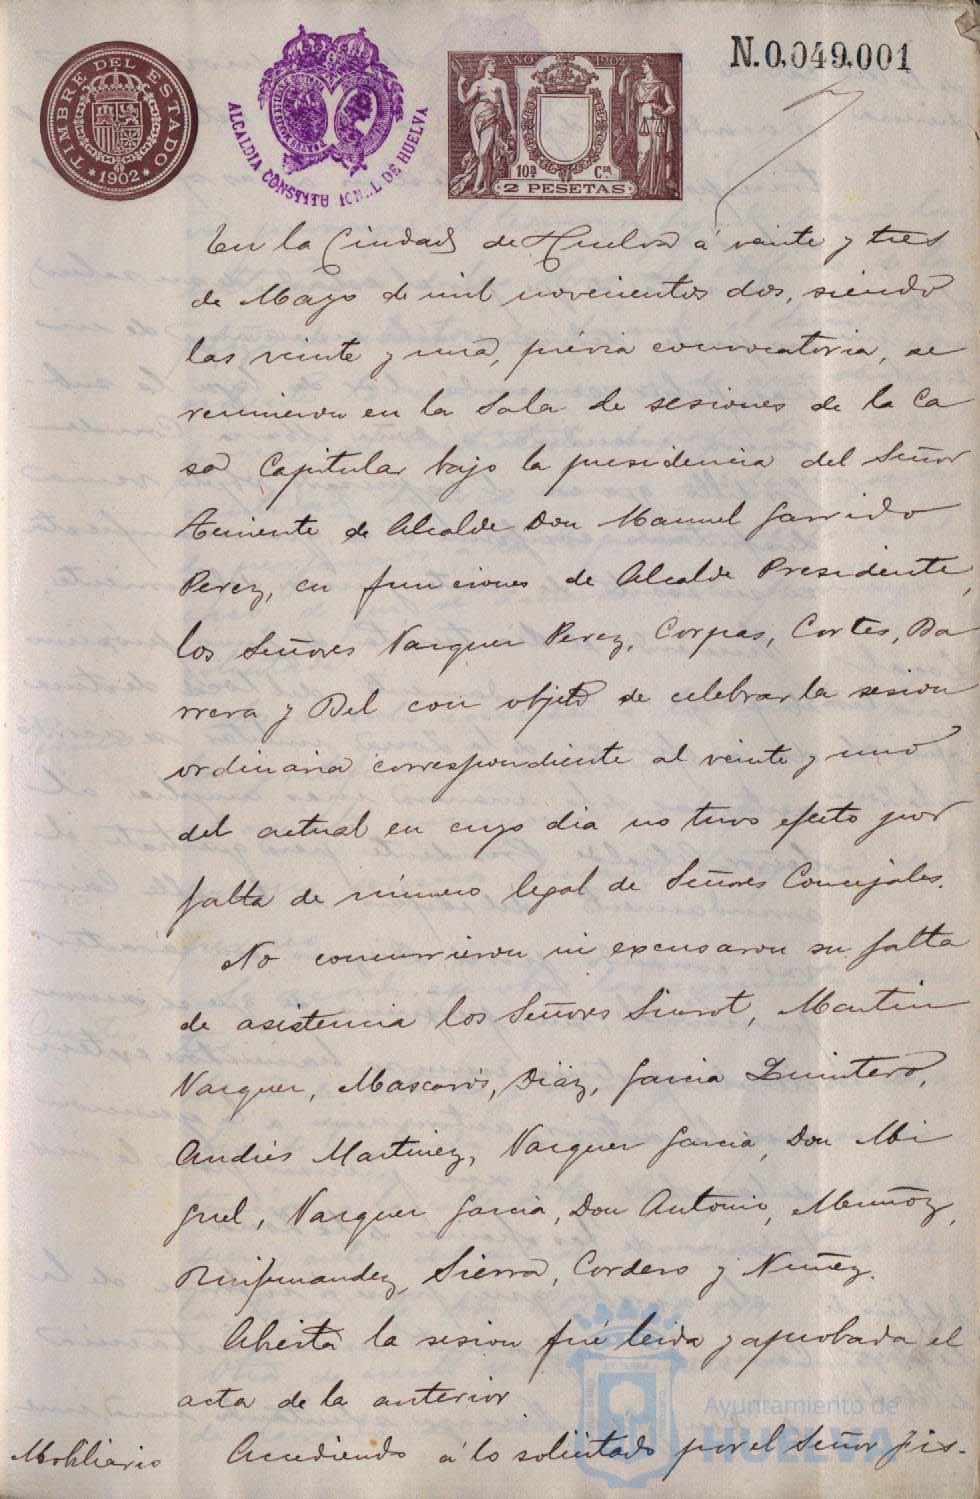 TIMBRE DEL ESTADO
*1902*
ALCALDIA CONSTITUCIONAL DE HUELVA
AÑO 1902
10ª Cse
2 PESETAS
N.0,049,001
En la Ciudad de Huelva á veinte y tres
de Mayo de mil novecientos dos, siendo
las veinte y una, prévia convocatoria, se
reunieron en la Sala de sesiones de la Ca
sa Capitular bajo la presidencia del Señor
Teniente de Alcalde Don Manuel Garrido
Perez, en funciones de Alcalde Presidente,
los Señores Vazquez Perez, Corpas, Cortés, Ba
rrera y Bel con objeto de celebrar la sesion
ordinaria correspondiente al veinte y uno
del actual en cuyo dia no tuvo efecto por
falta de número legal de Señores Concejales.
No concurrieron ni excusaron su falta
de asistencia los Señores Siurot, Martin
Vazquez, Mascarós, Diaz, Garcia Quintero,
Andrés Martinez, Vazquez Garcia, Don Mi
guel, Vazquez Garcia, Don Antonio, Muñoz,
Ruifernandez, Sierra, Cordero y Nuñez.
Abierta la sesion fué leida y aprobada el
acta de la anterior
Mobiliario Accediendo á lo solicitado por el Señor Fis-
Ayuntamiento de
HUELVA